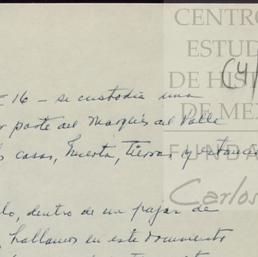 CENTRO
ESTUD
DE HIST
DE MEX
FUNDA
Carlos
16 - se custodia una
parte del Marqués del Valle
casas, huerta, tierras y estancia
lo, dentro de un pajar de
hallamos en este documento